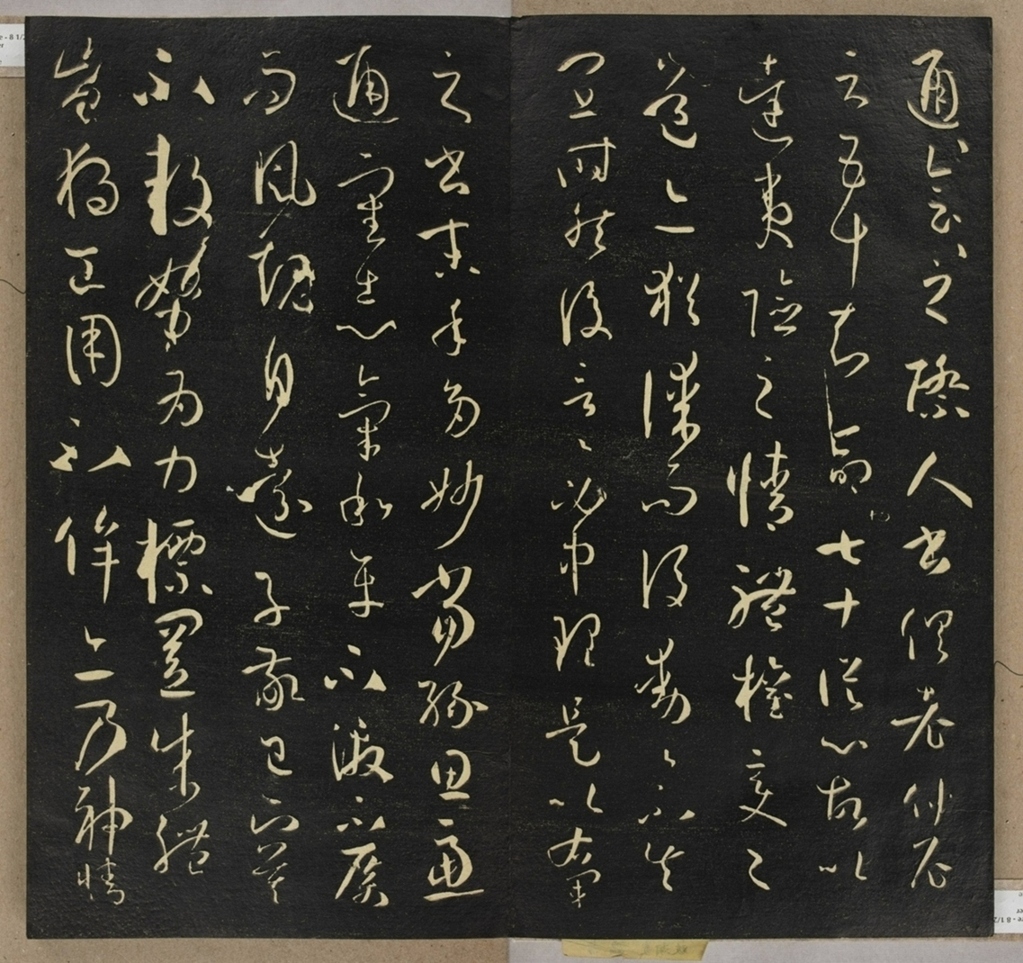 通會之際人書俱老仲尼
云五十知命七十從心故以
達夷險之情體權變之
道亦猶謀而後動々不失
宜時然後言々必中理是以右軍
之書末年多妙當緣思慮
通審志氣和平不激不厲
而風規自遠子敬已下莫
不鼓努為力標置成體
豈獨工用不侔亦乃神情